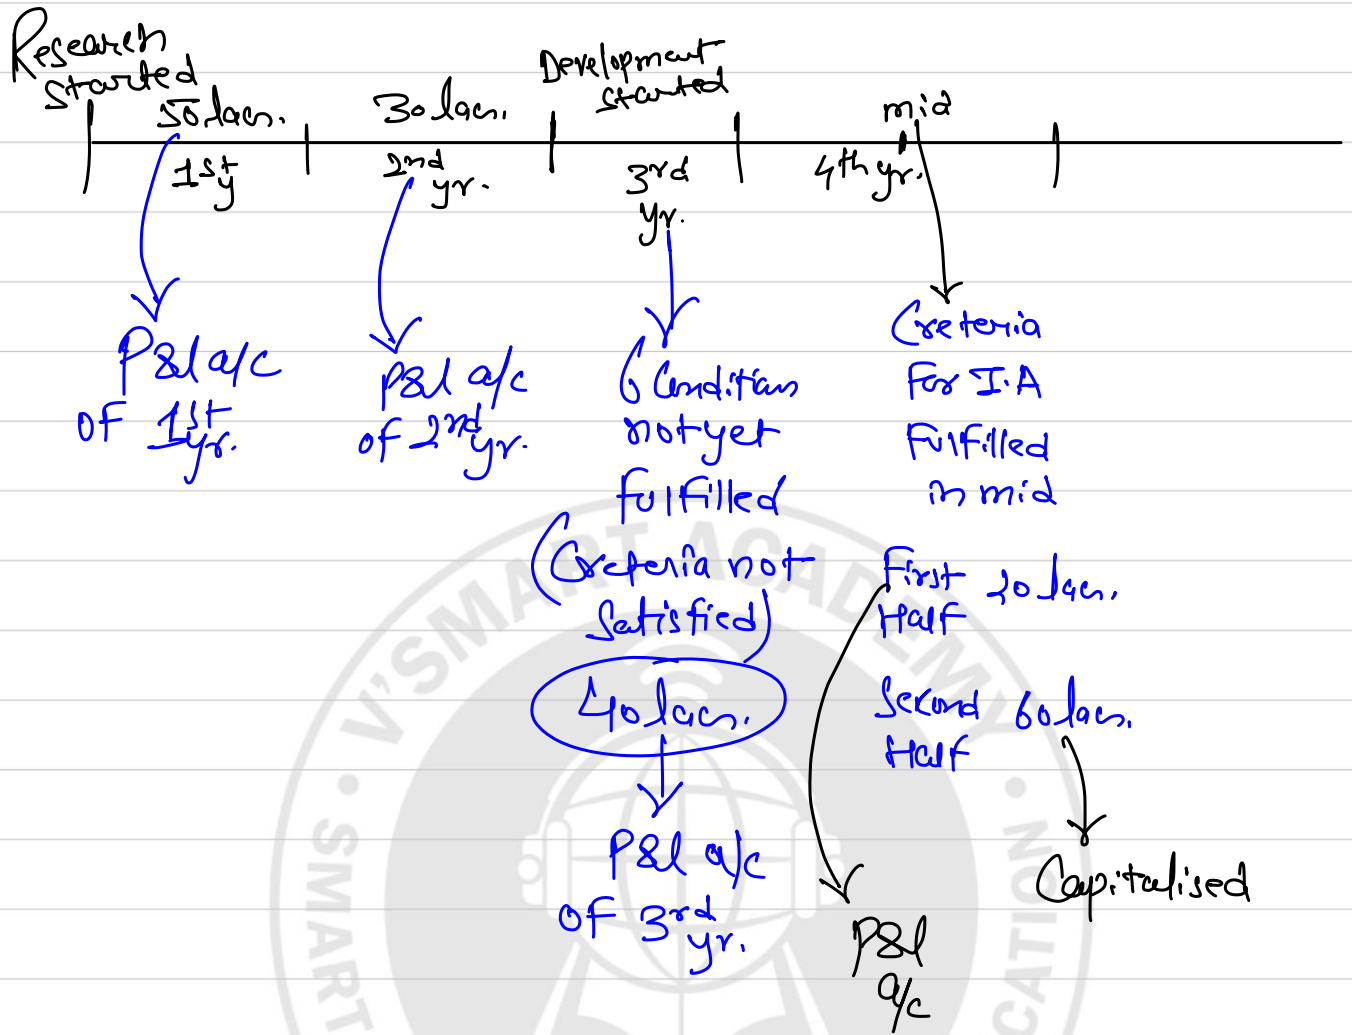 Research
Started
50 lacs.
30 lacs.
Development
Started
mid
1st
y
2nd
yr.
3rd
yr.
4th yr.
P&l a/c
of 1st
yr.
P&l a/c
of 2nd
yr.
6 Condition
not yet
fulfilled
(Creteria not
Satisfied)
40 lacs.
P&l a/c
of 3rd
yr.
Creteria
For I.A
Fulfilled
in mid
First 20 lacs.
Half
Second 60 lacs.
Half
P&l
a/c
Capitalised
V'SMART ACADEMY
SMART